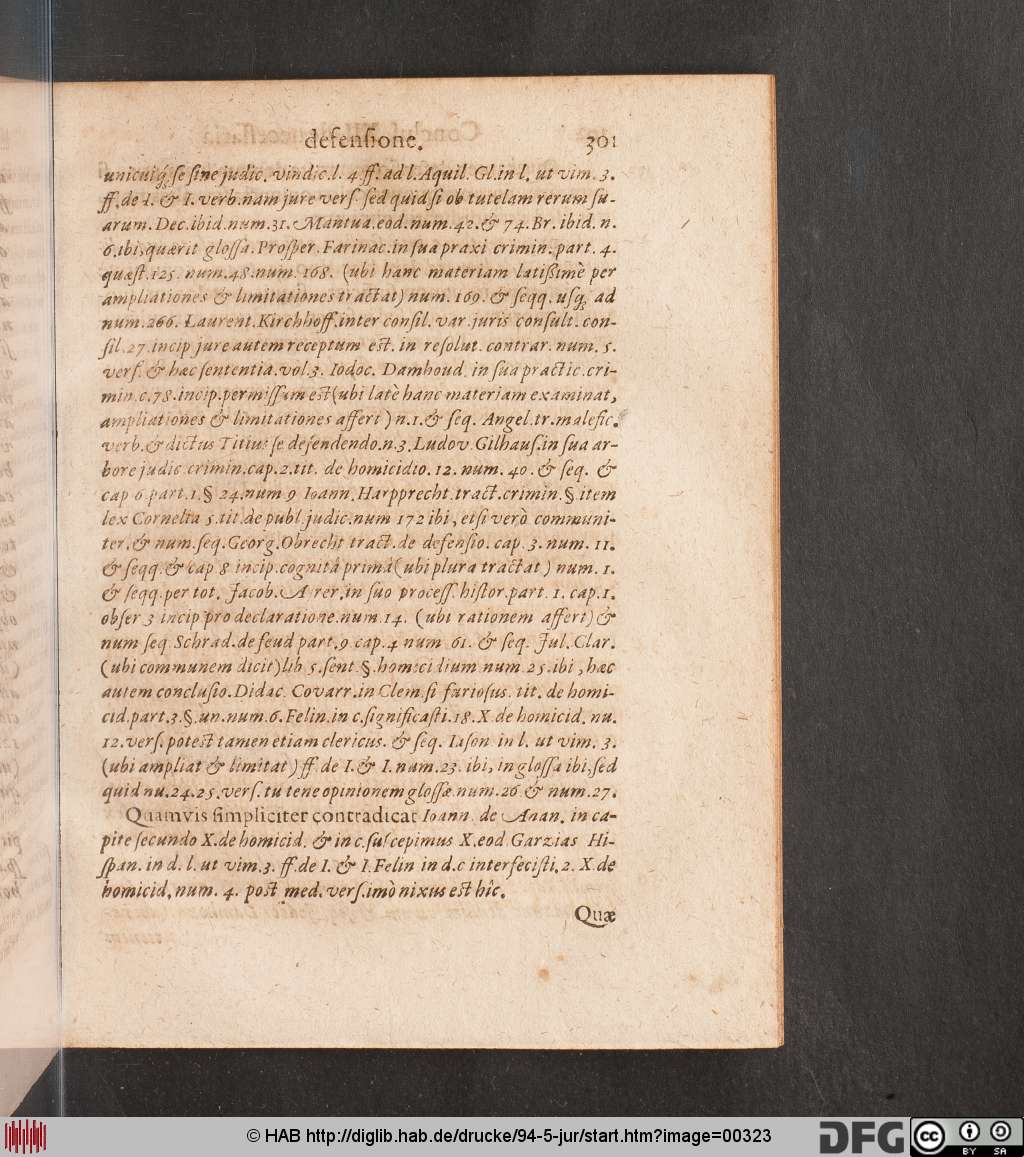 defensione. 301
unicuiq́; se sine judic. vindic. l. 4. ff. ad l. Aquil. Gl. in l. ut vim. 3.
ff. de I. & I. verb. nam jure vers. sed quid si ob tutelam rerum su-
arum. Dec. ibid. num. 31. Mantua. eod. num. 42. & 74. Br. ibid. n.
6. ibi, quærit glossa. Prosper. Farinac. in sua praxi crimin. part. 4.
quæst. 125. num. 48. num. 168. (ubi hanc materiam latißimè per
ampliationes & limitationes tractat) num. 169. & seqq. usq; ad
num. 266. Laurent. Kirchhoff. inter consil. var. juris consult. con-
sil. 27. incip jure autem receptum est. in resolut. contrar. num. 5.
vers. & hæc sententia. vol. 3. Iodoc. Damhoud. in sua practic. cri-
min. c. 78. incip. permissum est (ubi latè hanc materiam examinat,
ampliationes & limitationes affert) n. 1. & seq. Angel. tr. malefic.
verb. & dictus Titius se defendendo. n. 3. Ludov. Gilhaus. in sua ar-
bore judic. crimin. cap. 2. tit. de homicidio. 12. num. 40. & seq. &
cap 6. part. 1. § 24. num 9 Ioann. Harpprecht. tract. crimin. § item
lex Cornelia 5. tit. de publ. judic. num 172 ibi, etsi verò communi-
ter. & num. seq. Georg. Obrecht. tract. de defensio. cap. 3. num. 11.
& seqq. & cap 8 incip. cognitâ primâ (ubi plura tractat) num. 1.
& seqq. per tot. Jacob. Ayrer. in suo process. histor. part. 1. cap. 1.
obser 3 incip pro declaratione. num. 14. (ubi rationem affert) &
num seq. Schrad. de feud part. 9 cap. 4 num 61. & seq. Jul. Clar.
(ubi communem dicit) lib 5. sent. §. homicidium num 25. ibi, hæc
autem conclusio. Didac. Covarr. in Clem. si furiosus. tit. de homi-
cid. part. 3. §. un. num. 6. Felin. in c. significasti. 18. X. de homicid. nu.
12. vers. potest tamen etiam clericus. & seq. Iason. in l. ut vim. 3.
(ubi ampliat & limitat) ff. de I. & I. num. 23. ibi, in glossa ibi, sed
quid nu. 24. 25. vers. tu tene opinionem glossæ. num. 26 & num. 27.
Quamvis simpliciter contradicat Ioann. de Anan. in ca-
pite secundo X. de homicid. & in c. suscepimus X. eod. Garzias Hi-
span. in d. l. ut vim. 3. ff. de I. & I. Felin in d. c interfecisti. 2. X. de
homicid. num. 4. post med. vers. imò nixus est hîc.
Quæ
© HAB http://diglib.hab.de/drucke/94-5-jur/start.htm?image=00323
DFG
cc BY SA